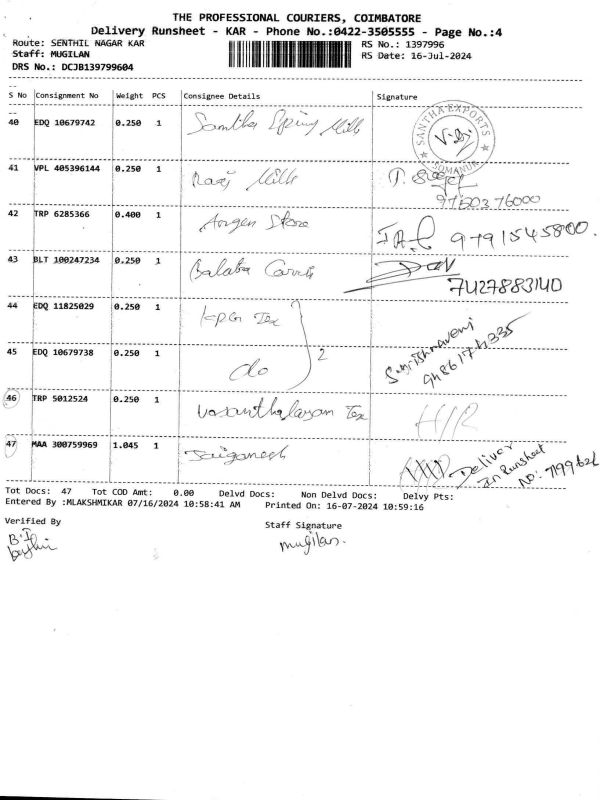 THE PROFESSIONAL COURIERS, COIMBATORE
Delivery Runsheet - KAR - Phone No.:0422-3505555 - Page No.:4
Route: SENTHIL NAGAR KAR
RS No.: 1397996
Staff: MUGILAN
RS Date: 16-Jul-2024
DRS No.: DCJB139799604
S No Consignment No Weight PCS Consignee Details Signature
40 EDQ 10679742 0.250 1 Santha Spinng Mills
SANTHA EXPORTS
SOMANUR
41 VPL 405396144 0.250 1 Mills
42 TRP 6285366 0.400 1 Store 9791545800.
43 BLT 100247234 0.250 1 Balaba
7427883140
44 EDQ 11825029 0.250 1 KPG Tex
2
45 EDQ 10679738 0.250 1 do
46 TRP 5012524 0.250 1 Vasanthalayam Tex
47 MAA 300759969 1.045 1 Jaiganesh
Deliver
In Runsheet
NO:
Tot Docs: 47 Tot COD Amt: 0.00 Delvd Docs: Non Delvd Docs: Delvy Pts:
Entered By :MLAKSHMIKAR 07/16/2024 10:58:41 AM Printed On: 16-07-2024 10:59:16
Verified By
Staff Signature
mugilan.